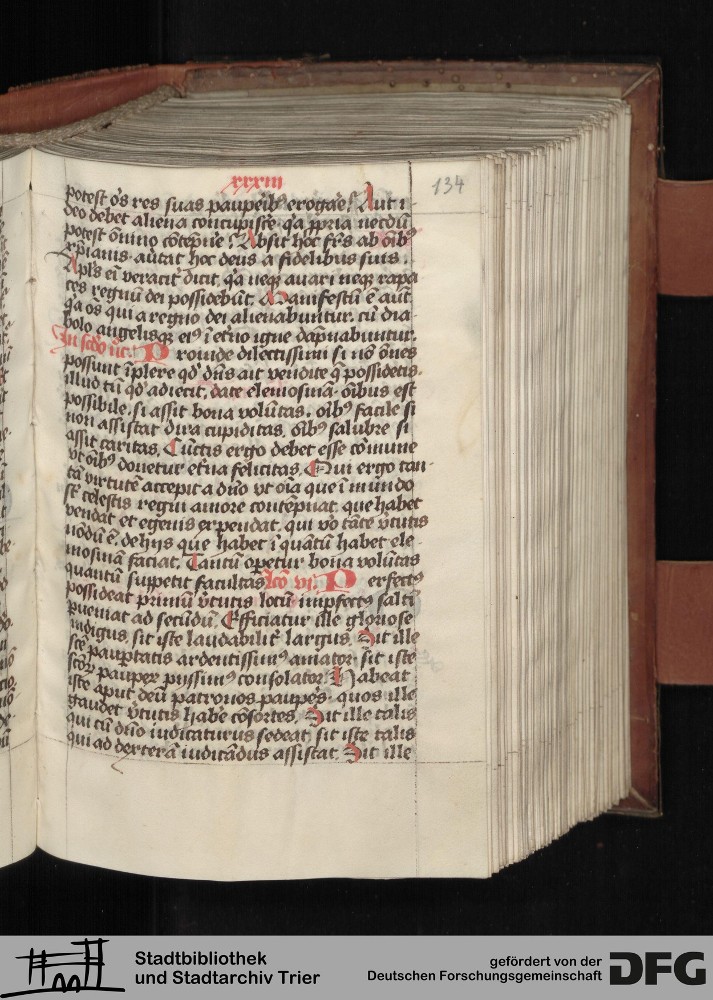 xxxiii
134
potest o̅s res suas paup̅eib⁹ erogar̅e? Aut i-
deo debet aliena concupisc̅e q̅a p̅pria necdu̅
potest o̅nino co̅tep̅ne? Absit hoc fr̅s ab o̅ib⁹
xp̅ianis. au̅tat hoc deus a fidelibus suis.
Apl̅s ei̅ veracit̅ dicit. q̅a neq̅ auari neq̅ rapa
ces regnu̅ dei possidebu̅t. Manifestu̅ e̅ aut̅.
q̅a o̅s qui a regno dei alienabuntur. cu̅ dia-
bolo angelisq̅ ei⁹ i̅ et̅no igne da̅pnabuntur.
In sc̅do n̅c. Proinde dilectissimi si no̅ o̅nes
possunt i̅plere qd̅ dn̅s ait vendite q̅ possidetis.
illud tn̅ qd̅ adiecit. date elemosina̅. o̅ibus est
possibile. si assit bona volu̅tas. oi̅b⁹ facile si
non assistat dira cupiditas. oi̅b⁹ salubre si
assit caritas. Cu̅ctis ergo debet esse co̅mune
vt oi̅b⁹ donetur et̅na felicitas. Qui ergo tan-
ta̅ virtute̅ accepit a dn̅o vt oi̅a que i̅ mundo
st̅ celestis regni amore conte̅pnat. que habet
vendat et egenis expendat. qui v̅o ta̅te v̅tutis
no̅du̅ e̅. de hijs que habet i̅ qua̅tu̅ habet ele-
mosina̅ faciat. Tantu̅ op̅etur bona volu̅tas
quantu̅ suppetit facultas. lc̅o vi. Perfect⁹
possideat primu̅ v̅tutis locu̅ imp̅fect⁹ salti̅
p̅ueniat ad secu̅du̅. Efficiatur ille gloriose
indigus. sit iste laudabilit̅ largus. Sit ille
sc̅e paup̅tatis ardentissim⁹ amator. sit iste
sc̅or̅ paup̅er̅ piissim⁹ consolator. Habeat
iste aput deu̅ patronos paup̅es. quos ille
gaudet v̅tutis hab̅e co̅sortes. Sit ille talis
qui cu̅ dn̅o iudicaturus sedeat. sit iste talis
qui ad dextera̅ iudica̅dus assistat. Sit ille
Stadtbibliothek
und Stadtarchiv Trier
gefördert von der
Deutschen Forschungsgemeinschaft DFG